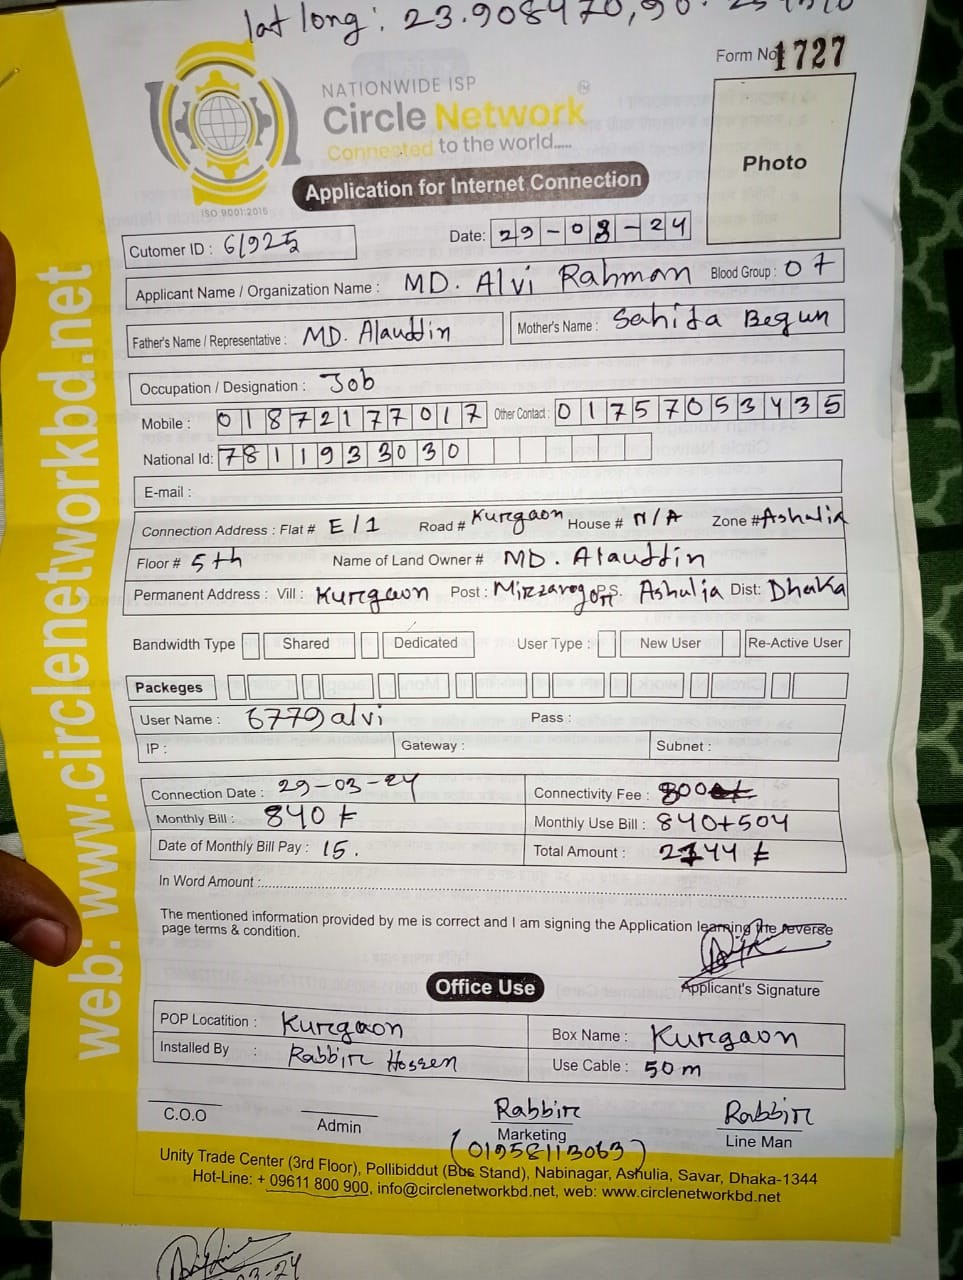 lat long: 23.908470,90.
Form No 1727
NATIONWIDE ISP
Circle Network
Connected to the world.....
ISO 9001:2015
Photo
Application for Internet Connection
Cutomer ID : 61925 Date: 29-03-24
Applicant Name / Organization Name : MD. Alvi Rahman Blood Group : O+
Father's Name / Representative : MD. Alauddin Mother's Name : Sahida Begum
Occupation / Designation : Job
Mobile : 01872177017 Other Contact : 01757053435
National Id: 7811933030
E-mail :
Connection Address : Flat # E/1 Road # Kurgaon House # N/A Zone # Ashulia
Floor # 5th Name of Land Owner # MD. Alauddin
Permanent Address : Vill : Kurgaon Post : P.S. Ashulia Dist: Dhaka
Bandwidth Type Shared Dedicated User Type : New User Re-Active User
Packeges
User Name : 6779alvi Pass :
IP : Gateway : Subnet :
Connection Date : 29-03-24 Connectivity Fee : 800
Monthly Bill : 840 ৳ Monthly Use Bill : 840+504
Date of Monthly Bill Pay : 15. Total Amount : 2144 ৳
In Word Amount :
The mentioned information provided by me is correct and I am signing the Application learning the reverse
page terms & condition.
Applicant's Signature
Office Use
POP Locatition : Kurgaon Box Name : Kurgaon
Installed By : Rabbir Hossen Use Cable : 50m
Rabbir Rabbir
C.O.O Admin Marketing Line Man
(01958113063)
Unity Trade Center (3rd Floor), Pollibiddut (Bus Stand), Nabinagar, Ashulia, Savar, Dhaka-1344
Hot-Line: + 09611 800 900, info@circlenetworkbd.net, web: www.circlenetworkbd.net
web: www.circlenetworkbd.net
03-24